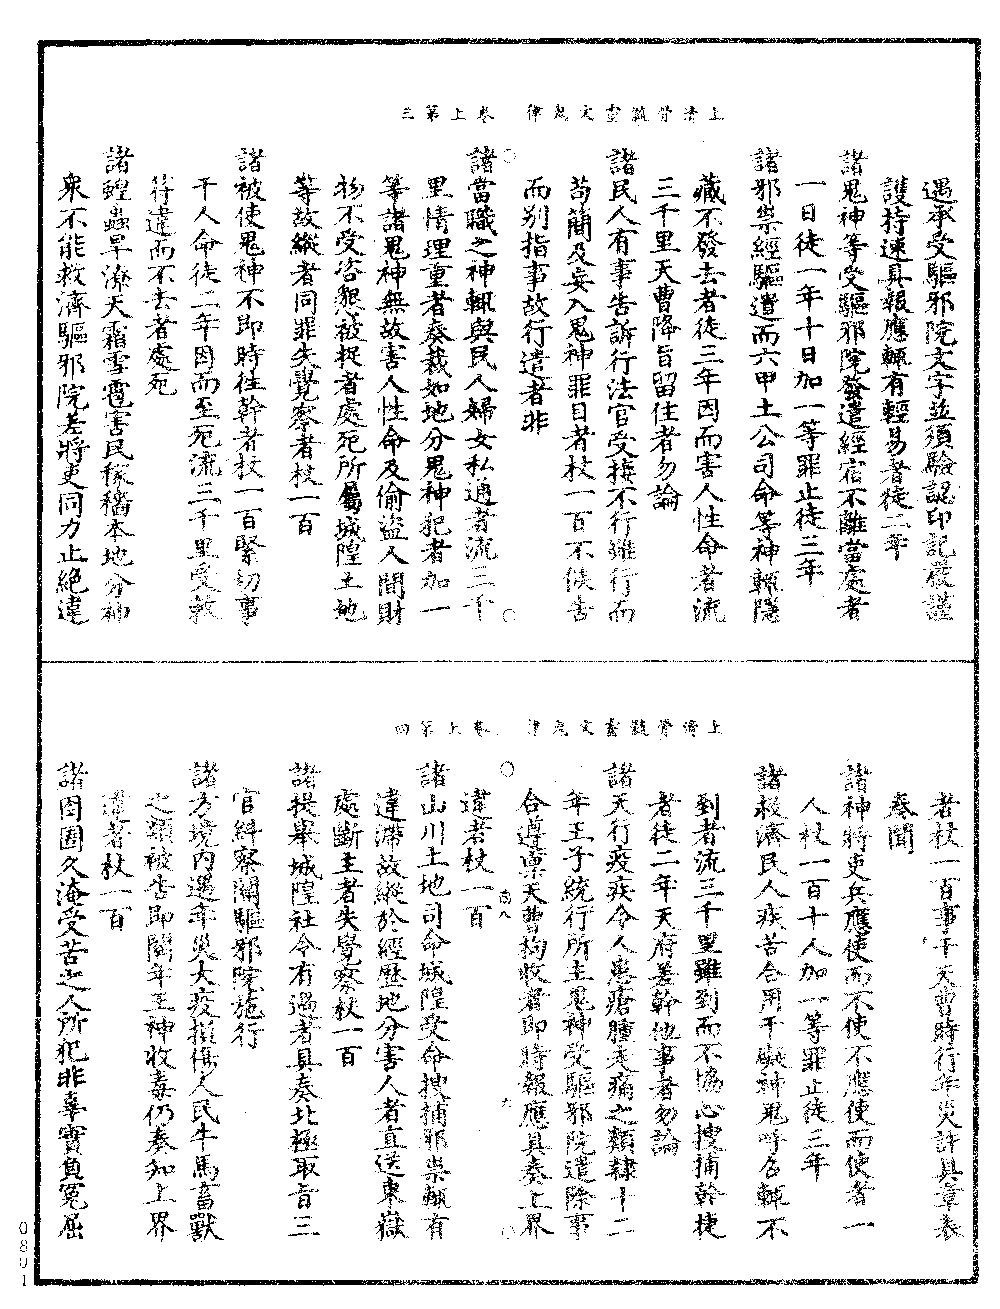 上清骨髓靈文鬼律　卷上第三
遇承受驅邪院文字並須驗認印記嚴謹
護持速具報應輒有輕易者徒二年
諸鬼神等受驅邪院發遣經宿不離當處者
一日徒一年十日加一等罪止徒三年
諸邪祟經驅遣而六甲土公司命等神輒隱
藏不發去者徒三年因而害人性命者流
三千里天曹降旨留住者勿論
諸民人有事告訴行法官受接不行雖行而
苟簡及妄入鬼神罪目者杖一百不候告
而別指事故行遣者非
諸當職之神輒與民人婦女私通者流三千
里情理重者奏裁如地分鬼神犯者加一
等諸鬼神無故害人性命及偷盜人間財
物不受咨懇被捉者處死所屬城隍土地
等故縱者同罪失覺察者杖一百
諸被使鬼神不即時往幹者杖一百緊切事
干人命徒二年因而至死流三千里受敕
符違而不去者處死
諸蝗蟲旱潦天霜雪雹害民稼穡本地分神
衆不能救濟驅邪院差將吏同力止絕違
上清骨髓靈文鬼律　卷上第四
者杖一百事干天曹時行年災許具章表
奏聞
諸神將吏兵應使而不使不應使而使者一
人杖一百十人加一等罪止徒三年
諸救濟民人疾苦合用干礙神鬼呼召輒不
到者流三千里雖到而不協心搜捕幹捷
者徒二年天府差幹他事者勿論
諸天行疫疾令人患瘡腫疼痛之類隸十二
年王子統行所主鬼神受驅邪院遣除事
合遵稟天曹拘收者即時報應具奏上界
違者杖一百
諸山川土地司命城隍受命搜捕邪祟輒有
違滯故縱於經歷地分害人者直送東嶽
處斷主者失覺察杖一百
諸提舉城隍社令有過者具奏北極取旨三
官糾察關驅邪院施行
諸方境內遇年災大疫損傷人民牛馬畜獸
之類被告即關年王神收毒仍奏知上界
違者杖一百
諸囹圄久淹受苦之人所犯非辜實負冤屈
0801